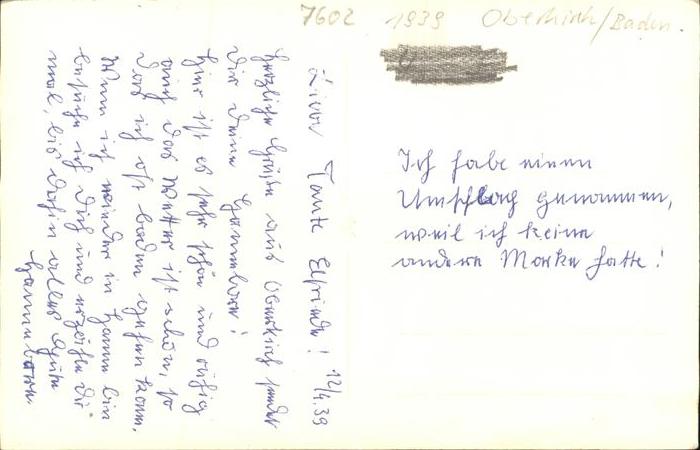 7602 1939 Oberkirch/Baden.
12/4.39
Liebe Tante Elfriede!
Herzliche Grüße aus Oberkirch sendet
Dir Deine Hannelore!
Hier ist es sehr schön und ruhig
auch das Wetter ist schön, so
daß ich oft baden gehen kann.
Wenn ich wieder in Hamm bin
besuche ich Dich und erzähle Dir
mal, bis dahin alles Gute
Hannelore
Ich habe einen
Umschlag genommen,
weil ich keine
andere Marke hatte!